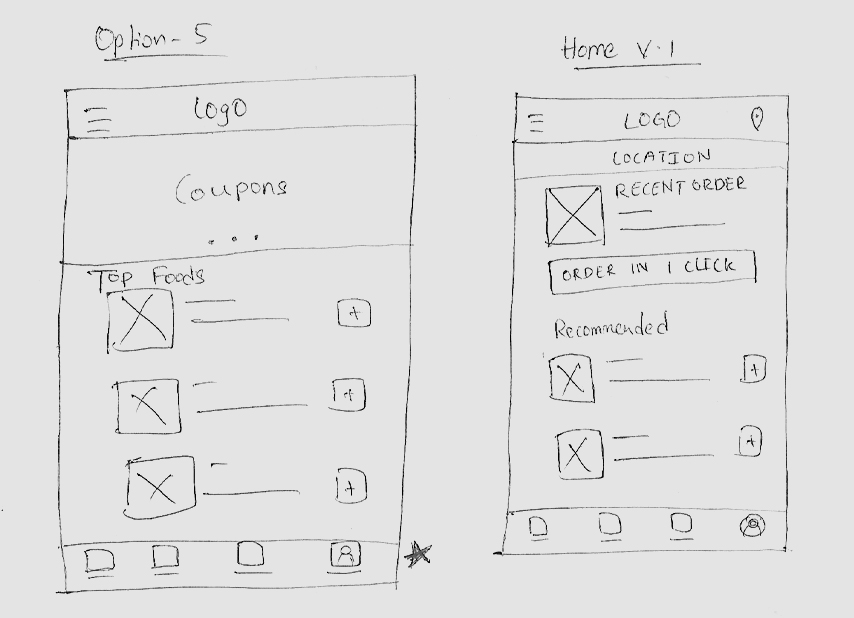 Option-5
Logo
Coupons
Top Foods
Home V.1
LOGO
LOCATION
RECENT ORDER
ORDER IN 1 CLICK
Recommended